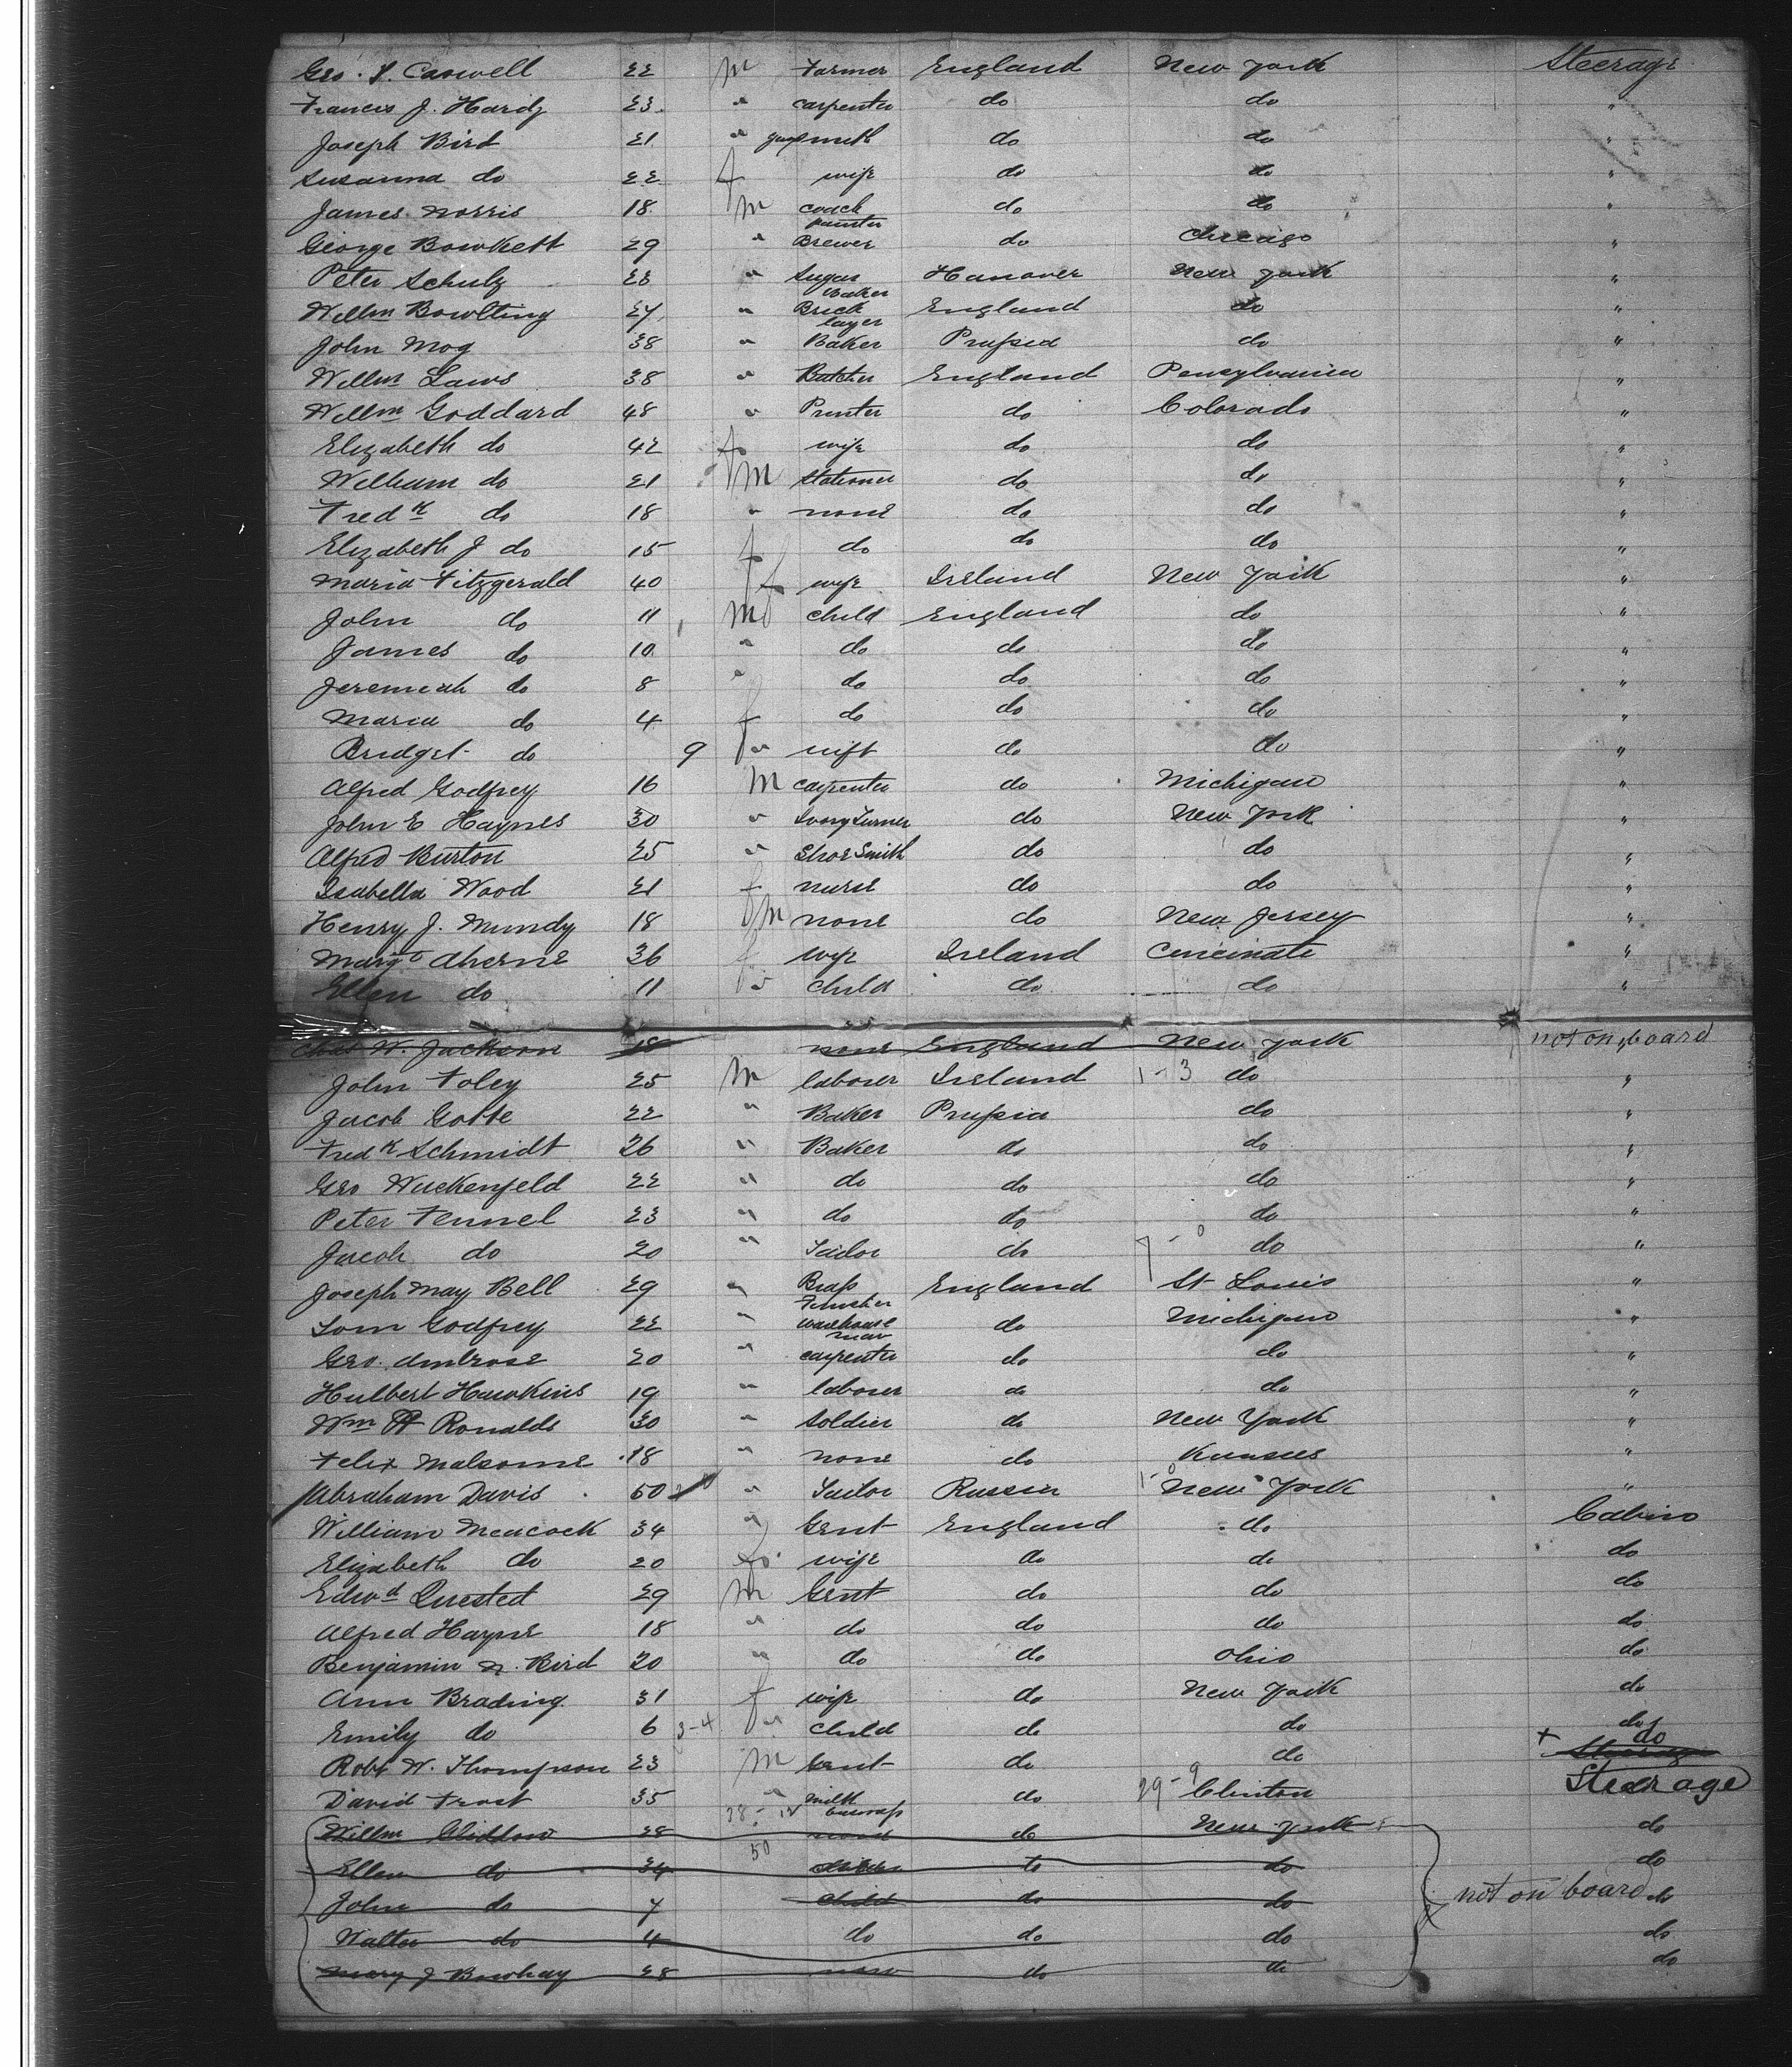 Geo. S. Caswell 22 m Farmer England New York Steerage
Francis J. Hardy 23 " carpenter do do "
Joseph Bird 21 " smith do do "
Susanna do 22 f wife do do "
James Norris 18 m coach painter do do "
George Bowkett 29 " Brewer do Chicago "
Peter Schulz 28 " Sugar Baker Hanover New York "
Willm Bowlting 27 " Brick layer England do "
John Mog 38 " Baker Prussia do "
Willm Laws 38 " Butcher England Pensylvania "
Willm Goddard 48 " Printer do Colorado "
Elizabeth do 42 f wife do do "
William do 21 m Stationer do do "
Fredk do 18 " none do do "
Elizabeth J do 15 f do do do "
Maria Fitzgerald 40 f wife Ireland New York "
John do 11 m child England do "
James do 10 " do do do "
Jeremiah do 8 " do do do "
Maria do 4 f do do do "
Bridget do 9 " inft do do "
Alfred Godfrey 16 m carpenter do Michigan "
John E Haynes 30 " Ivory Turner do New York "
Alfred Burton 25 " Shoe Smith do do "
Isabella Wood 21 f nurse do do "
Henry J. Mundy 18 m none do New Jersey "
Margt Aherne 36 f wife Ireland Cincinati "
Ellen do 11 " child do do "
Chas W. Jackson 18 none England New York not on board "
John Foley 25 m laborer Ireland 1-3 do "
Jacob Gotte 22 " Baker Prussia do "
Fredk Schmidt 26 " Baker do do "
Geo Wuckenfeld 22 " do do do "
Peter Fennel 23 " do do do "
Jacob do 20 " Tailor do 7-0 do "
Joseph May Bell 29 " Brass Finisher England St Louis "
Tom Godfrey 22 " warehouse man do Michigan "
Geo. Ambrose 20 " carpenter do do "
Hulbert Hawkins 19 " laborer do do "
Wm H Ronalds 30 " Soldier do New York "
Felix Malsome 18 " none do Kansas "
Abraham Davis 50 " Tailor Russia 1-0 New York "
William Meacock 34 " Gent England do Cabin
Elizabeth do 20 f wife do do do
Edwd Quested 29 m Gent do do do
Alfred Hayne 18 " do do do do
Benjamin N. Bird 20 " do do Ohio do
Ann Brading 31 f wife do New York do
Emily do 6 3-4 f " child do do do
Robt W. Thompson 23 m Gent do do + Steerage do
David Frost 35 " milk do 29-9 Clinton Steerage
Willm Gliddon 28 none do New York do
Ellen do 34 to do do
John do 7 child do do not on board do
Walter do 4 do do do do
Mary J Bowhay 28 none do do do